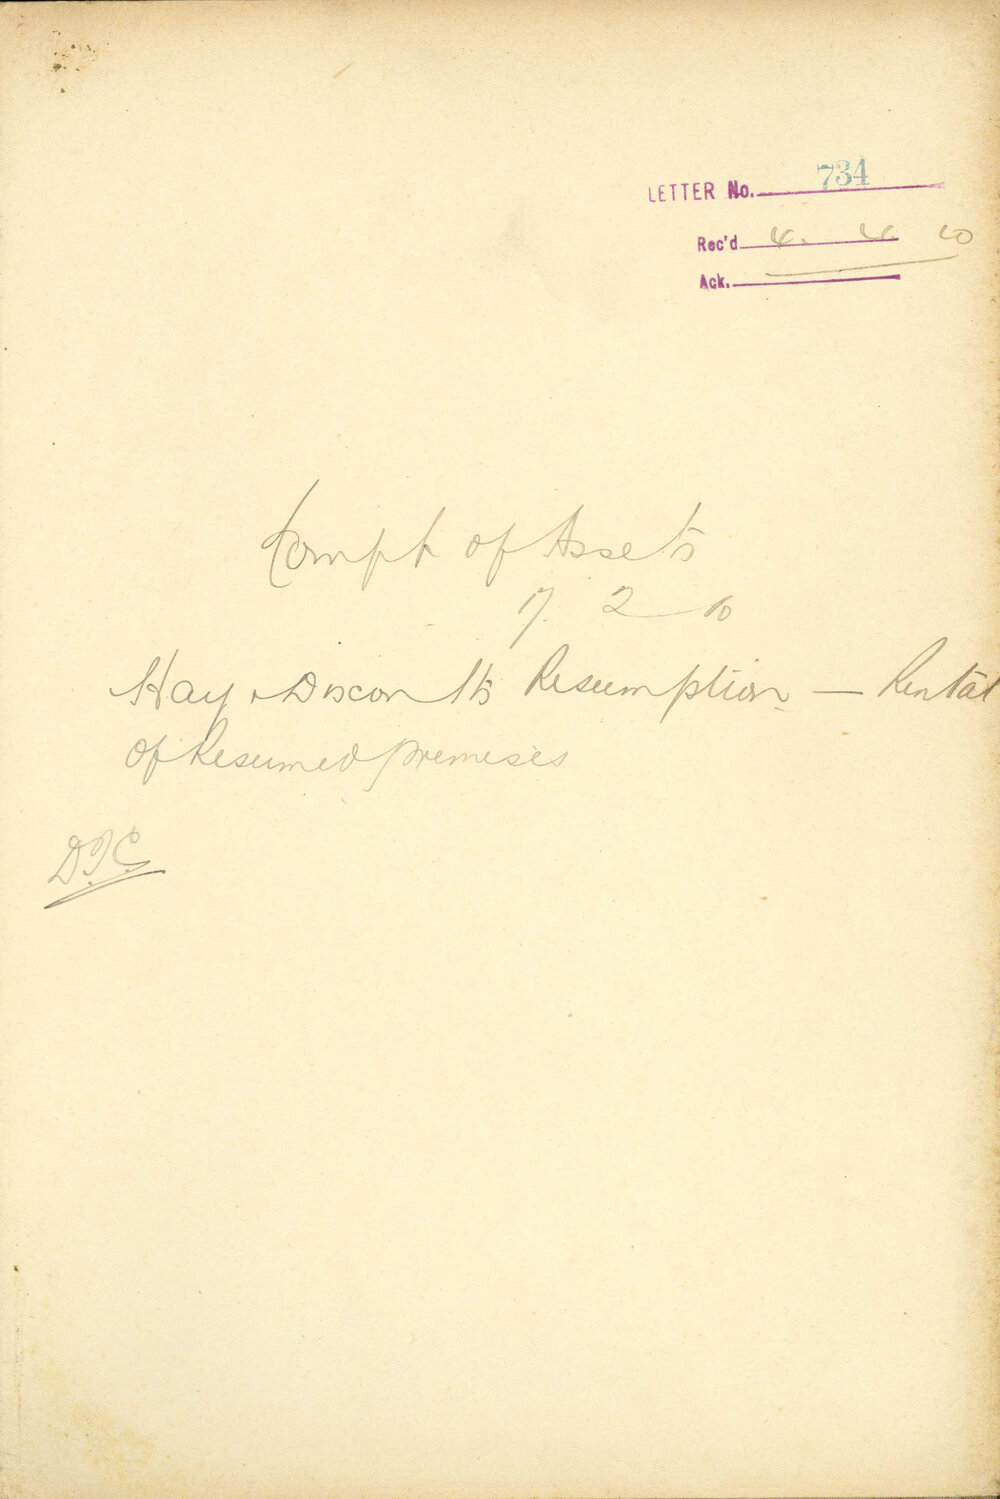 LETTER No. 734
Rec'd 4. 4. 10
Ack.
Compt of Assets
17. 2 10
Hay & Dixon Sts Resumption — Rental
of Resumed premises